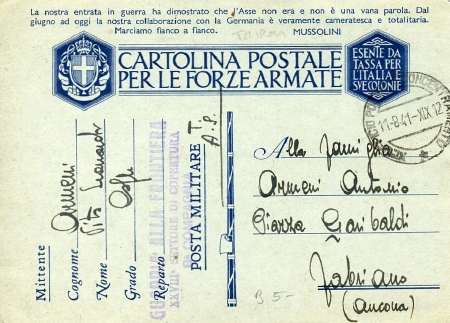 La nostra entrata in guerra ha dimostrato che l'Asse non era e non è una vana parola. Dal
giugno ad oggi la nostra collaborazione con la Germania è veramente cameratesca e totalitaria.
Marciamo fianco a fianco. MUSSOLINI
CARTOLINA POSTALE
PER LE FORZE ARMATE
ESENTE DA
TASSA PER
L'ITALIA E
SVE COLONIE
11-8-41-XIX 12
Mittente
Cognome Armeni
Nome Vito
Grado
Reparto
GUARDIA ALLA FRONTIERA
XXVIII° SETTORE DI COPERTURA
POSTA MILITARE
Alla famiglia
Armeni Antonio
Piazza Garibaldi
Fabriano
(Ancona)
B 5-